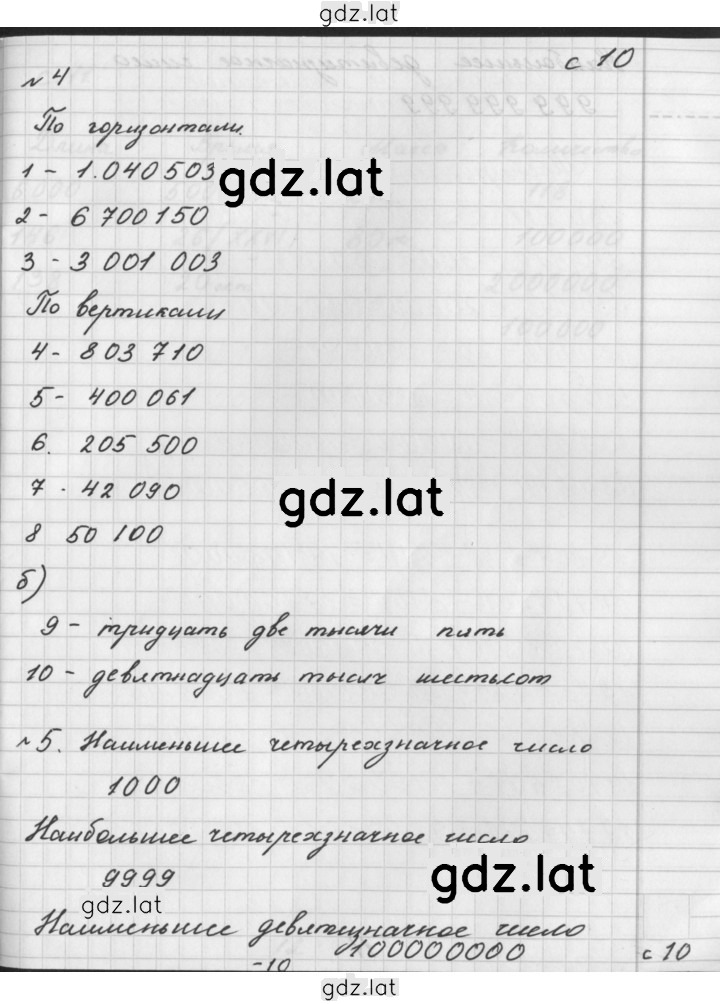 gdz.lat
с 10
№ 4
По горизонтали.
1 - 1.040503
gdz.lat
2 - 6 700150
3 - 3 001 003
По вертикали
4 - 803 710
5 - 400 061
6. 205 500
gdz.lat
7 . 42 090
8 50 100
б)
9 - тридцать две тысячи пять
10 - девятнадцать тысяч шестьсот
№5. Наименьшее четырехзначное число
1000
Наибольшее четырехзначное число
9999
gdz.lat
gdz.lat
Наименьшее девятизначное число
100000000
с 10
-10
gdz.lat